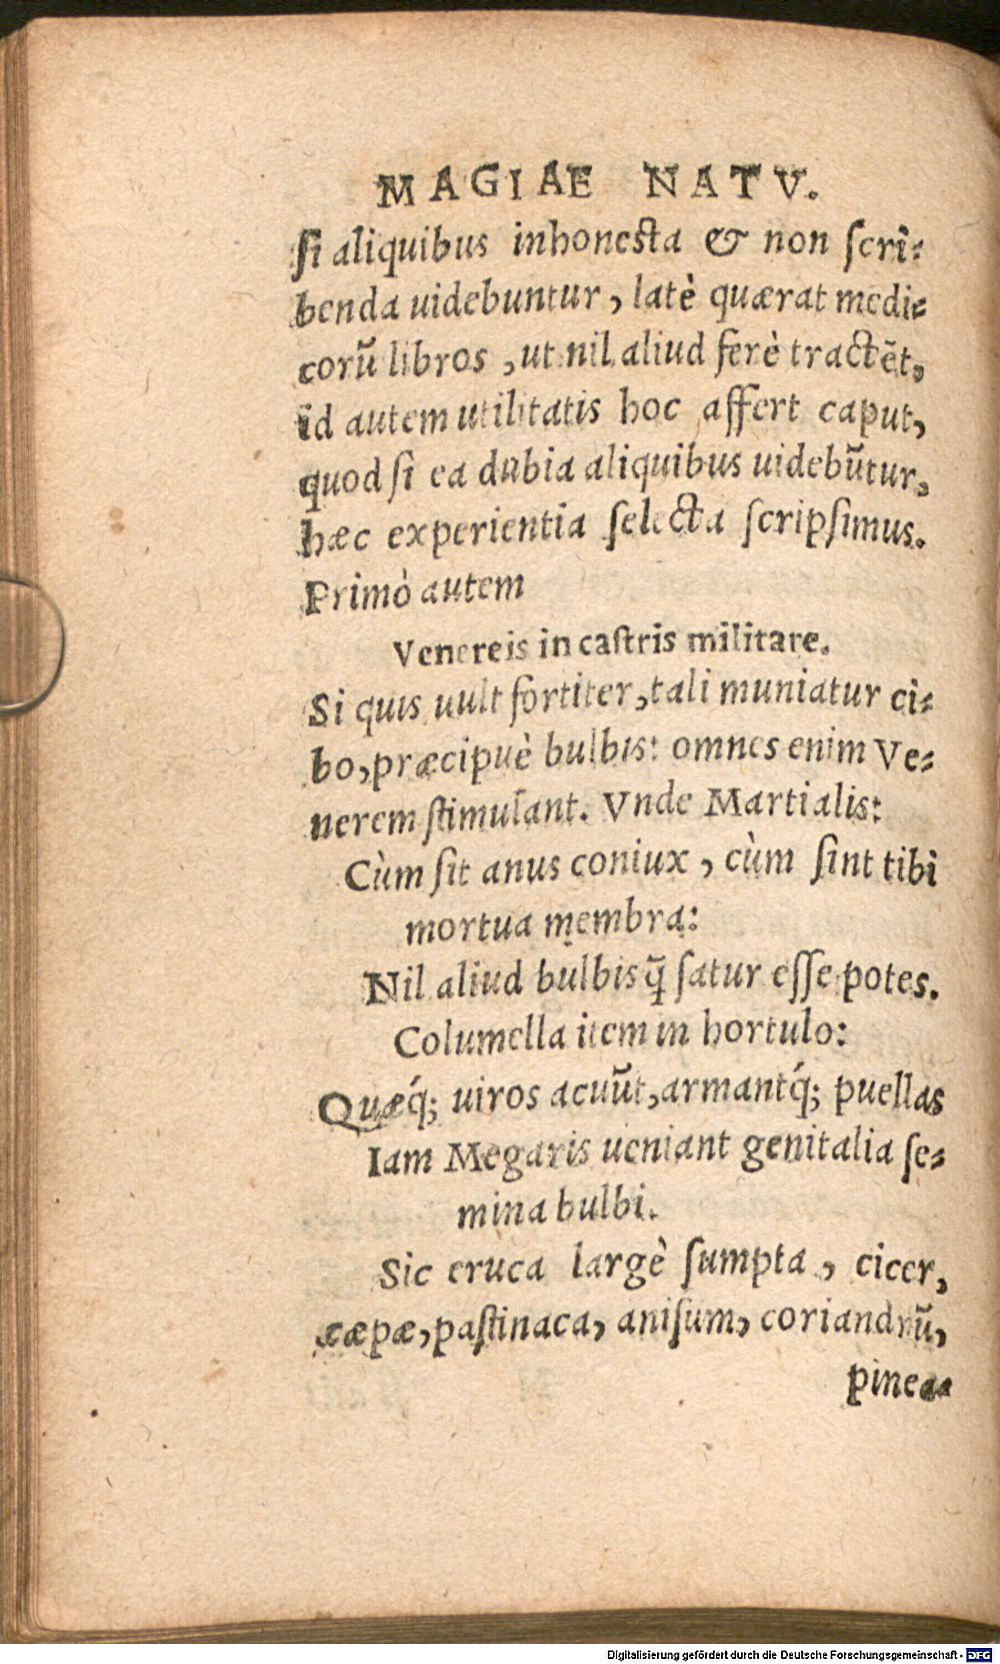 MAGIAE NATV.
ſi aliquibus inhoneſta & non ſcri⸗
benda uidebuntur, latè quærat medi⸗
corū libros, ut nil aliud ferè tractēt,
id autem utilitatis hoc affert caput,
quod ſi ea dubia aliquibus uidebūtur,
hæc experientia ſelecta ſcripſimus.
Primò autem
Venereis in caſtris militare.
Si quis uult fortiter, tali muniatur ci⸗
bo, præcipuè bulbis: omnes enim Ve⸗
nerem ſtimulant. Vnde Martialis:
Cùm ſit anus coniux, cùm ſint tibi
mortua membra:
Nil aliud bulbis q̄ ſatur eſſe potes.
Columella item in hortulo:
Quæq́; uiros acuūt, armantq́; puellas
Iam Megaris ueniant genitalia ſe⸗
mina bulbi.
Sic eruca largè ſumpta, cicer,
cæpæ, paſtinaca, aniſum, coriandrū,
pineaa
Digitalisierung gefördert durch die Deutsche Forschungsgemeinschaft - DFG